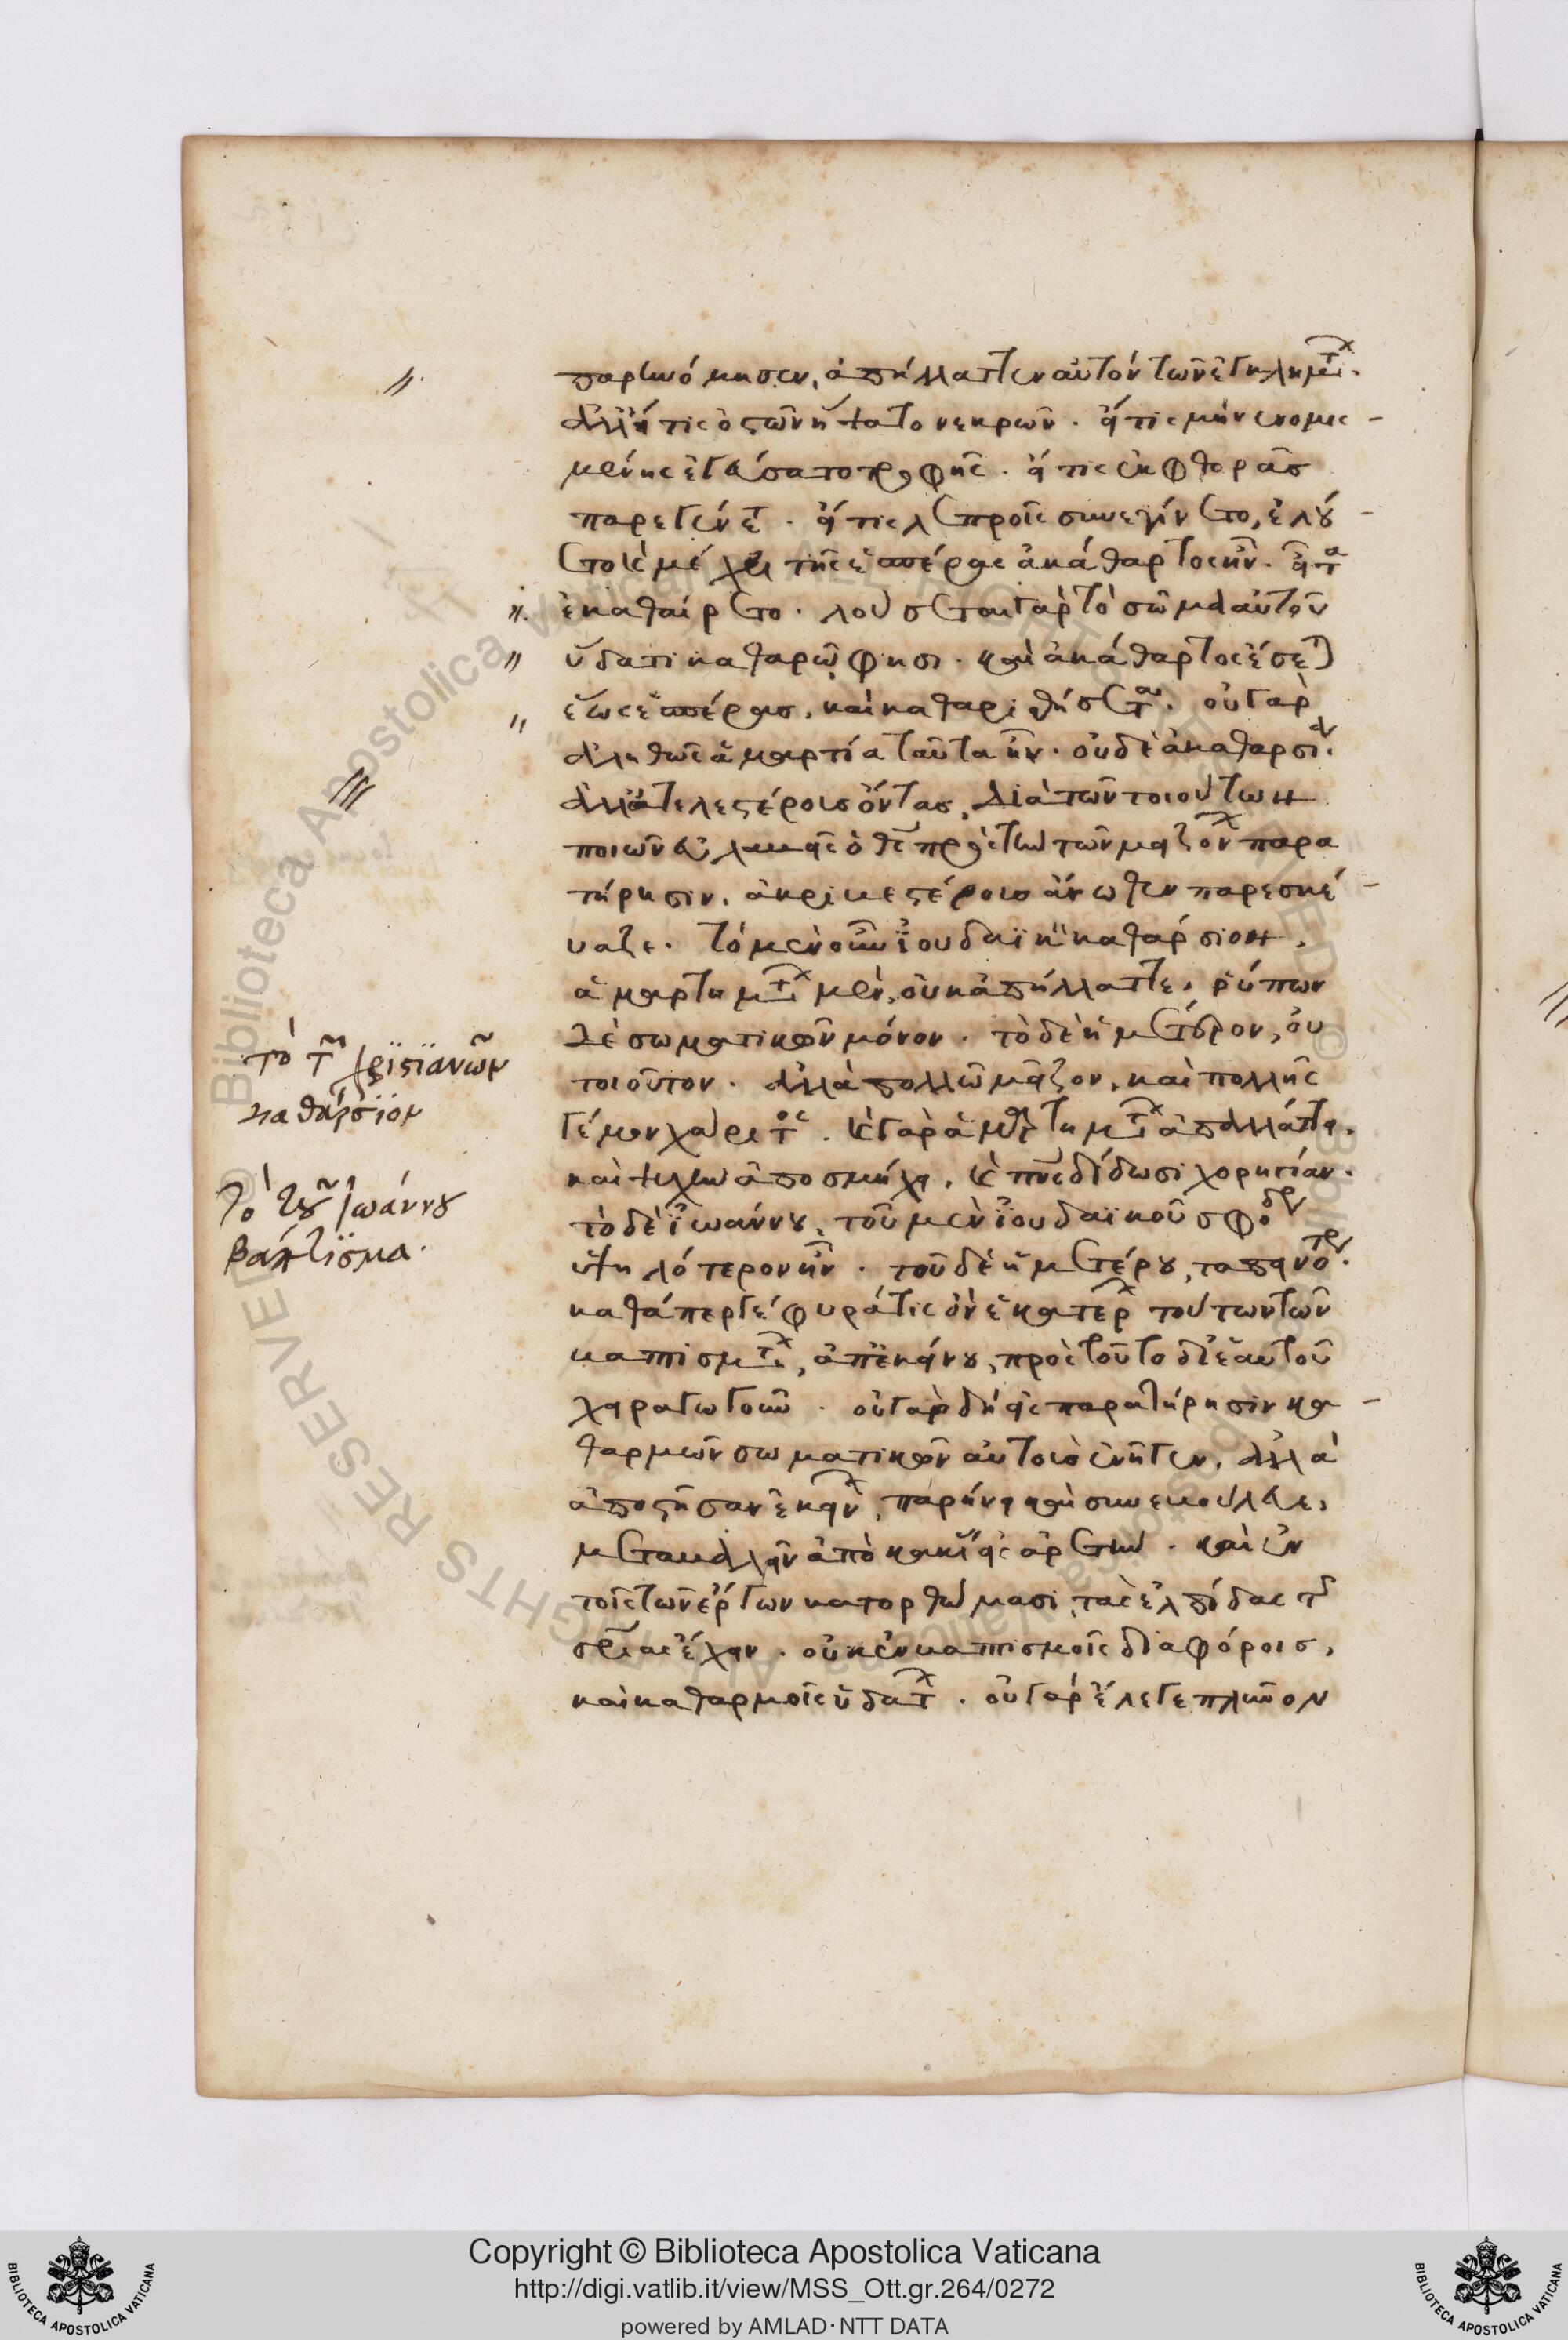 παρηνόμησεν, ἀπήλλαττεν αὐτὸν τῶν ἐγκλημάτων.
ἀλλ' εἴ τις ὀστῶν ἥψατο νεκρῶν. εἴ τις μὴ νενομισ-
μένης ἐγεύσατο τροφῆς. εἴ τις ἐκ φθορᾶς
παρεγένετο. εἴ τις λεπροῖς συνεγίνετο, ἐλού
ετο καὶ μέχρι τῆς ἑσπέρας ἀκάθαρτος ἦν. εἶτα
ἐκαθαίρετο. λούσεται γὰρ τὸ σῶμα αὐτοῦ
ὕδατι καθαρῷ φησι. καὶ ἀκάθαρτος ἔσται
ἕως ἑσπέρας, καὶ καθαρισθήσεται. οὐ γὰρ
ἀληθῶς ἁμαρτία ταῦτα ἦν. οὐδὲ ἀκαθαρσία.
ἀλλ' ἀτελεστέρους ὄντας, διὰ τῶν τοιούτων
ποιῶν εὐλαβεῖς ὁ θεὸς πρὸς τὴν τῶν μειζόνων παρα
τήρησιν, ἀκριβεστέρους ἄνωθεν παρεσκε-
ύαζε. τὸ μὲν οὖν ἰουδαϊκὸν καθάρσιον,
ἁμαρτημάτων μὲν, οὐκ ἀπήλλαττε, ῥύπων
δὲ σωματικῶν μόνον. τὸ δὲ ἡμέτερον, οὐ
τοιοῦτον. ἀλλὰ πολλῶ μεῖζον, καὶ πολλῆς
γέμον χάριτος. καὶ γὰρ ἁμαρτημάτων ἀπαλλάττει,
καὶ ψυχὴν ἀποσμήχει, καὶ πνεύματος δίδωσι χορηγίαν.
τὸ δὲ ἰωάννου, τοῦ μὲν ἰουδαϊκοῦ σφόδρα
ὑψηλότερον ἦν. τοῦ δὲ ἡμετέρου, ταπεινότερον.
καθάπερ γέφυρά τις ὂν ἑκατέρων τούτων τῶν
βαπτισμάτων, ἀπ' ἐκείνου, πρὸς τοῦτο δι' ἑαυτοῦ
χειραγωγοῦν. οὐ γὰρ δὴ εἰς παρατήρησιν κα-
θαρμῶν σωματικῶν αὐτοὺς ἐνῆγεν, ἀλλὰ
ἀποστῆσαν ἐκείνων, παρήνει καὶ συνεβούλευε,
μεταβαλεῖν ἀπὸ κακίας εἰς ἀρετὴν. καὶ ἐν
τοῖς τῶν ἔργων κατορθώμασι, τὰς ἐλπίδας τῆς
σωτηρίας ἔχειν. οὐκ ἐν βαπτισμοῖς διαφόροις,
καὶ καθαρμοῖς ὑδάτων. οὐ γὰρ ἔλεγε πλῦνον
τὸ τῶν χριστιανῶν
καθάρσιον
τὸ τοῦ Ἰωάννου
βάπτισμα.
Copyright © Biblioteca Apostolica Vaticana
http://digi.vatlib.it/view/MSS_Ott.gr.264/0272
powered by AMLAD·NTT DATA
BIBLIOTECA APOSTOLICA VATICANA
BIBLIOTECA APOSTOLICA VATICANA